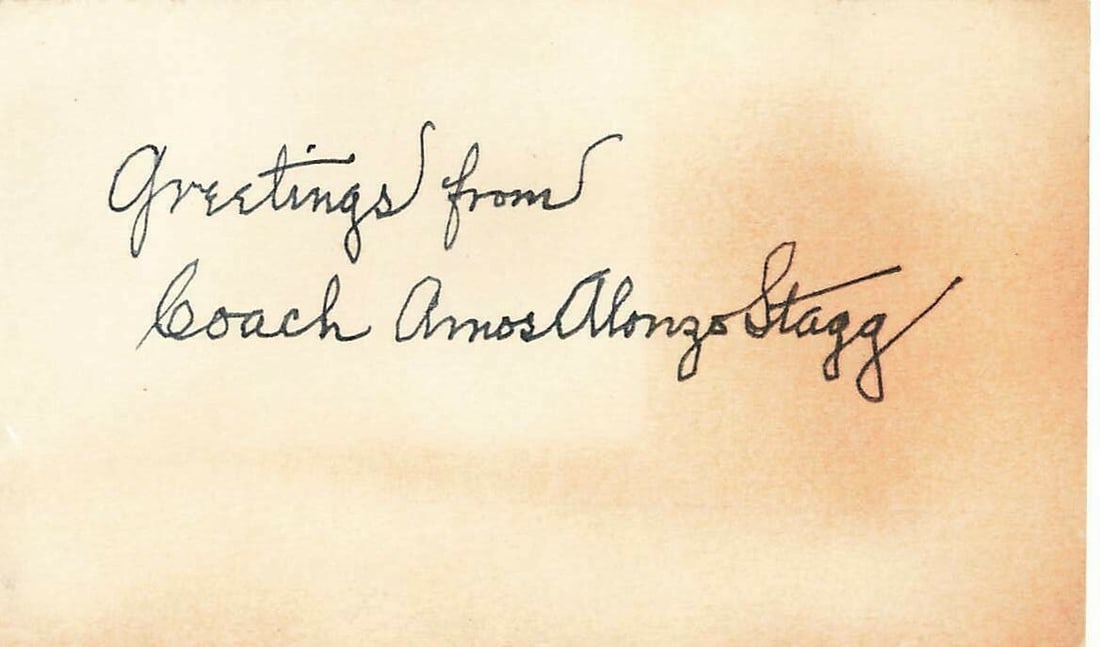 Greetings from
Coach Amos Alonzo Stagg